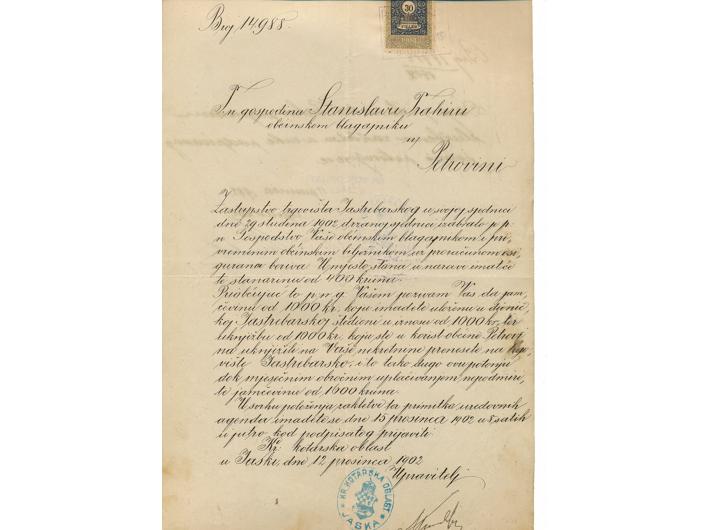 Broj 14988.
30
FILIRA
Tn gospodinu Stanislavu Trahiru
občinskom blagajniku
u
Petrovini
Zastupstvo trgovišta Jastrebarskog u svojoj sjednici
dne 29 studena 1902 držanoj sjednici izabralo p. p.
n Gospodstvo Vaše občinskim blagajnikom i pri
vremenim občinskim bilježnikom uz proračunom osi
gurana beriva. U mjesto stana u naravi imat će
te stanarinu od 400 kruna.
Priobćujuć to p. n. g. Vašem pozivam Vas da jam
čevinu od 1000 kr. koju imadete uloženu u dionič
koj Jastrebarskoj štedioni u iznosu od 1000 kr. ter
uknjižbu od 1000 kr. koju ste u korist občine Petrovi
na uknjižili na Vaše nekretnine prenesete na trgo
vište Jastrebarsko, i to tako dugo ovu potonju
dok mjesečnim obročnim uplaćivanjem nepodmiri
te jamčevinu od 1600 kruna.
U svrhu položenja zakletve ter primitka uredovnih
agenda imadete se dne 15 prosinca 1902 u 8 satih
u jutro kod podpisatog prijaviti.
Kr. kotarska oblast
u Jaski, dne 12 prosinca 1902
Upravitelj
KR. KOTARSKA OBLAST
JASKA